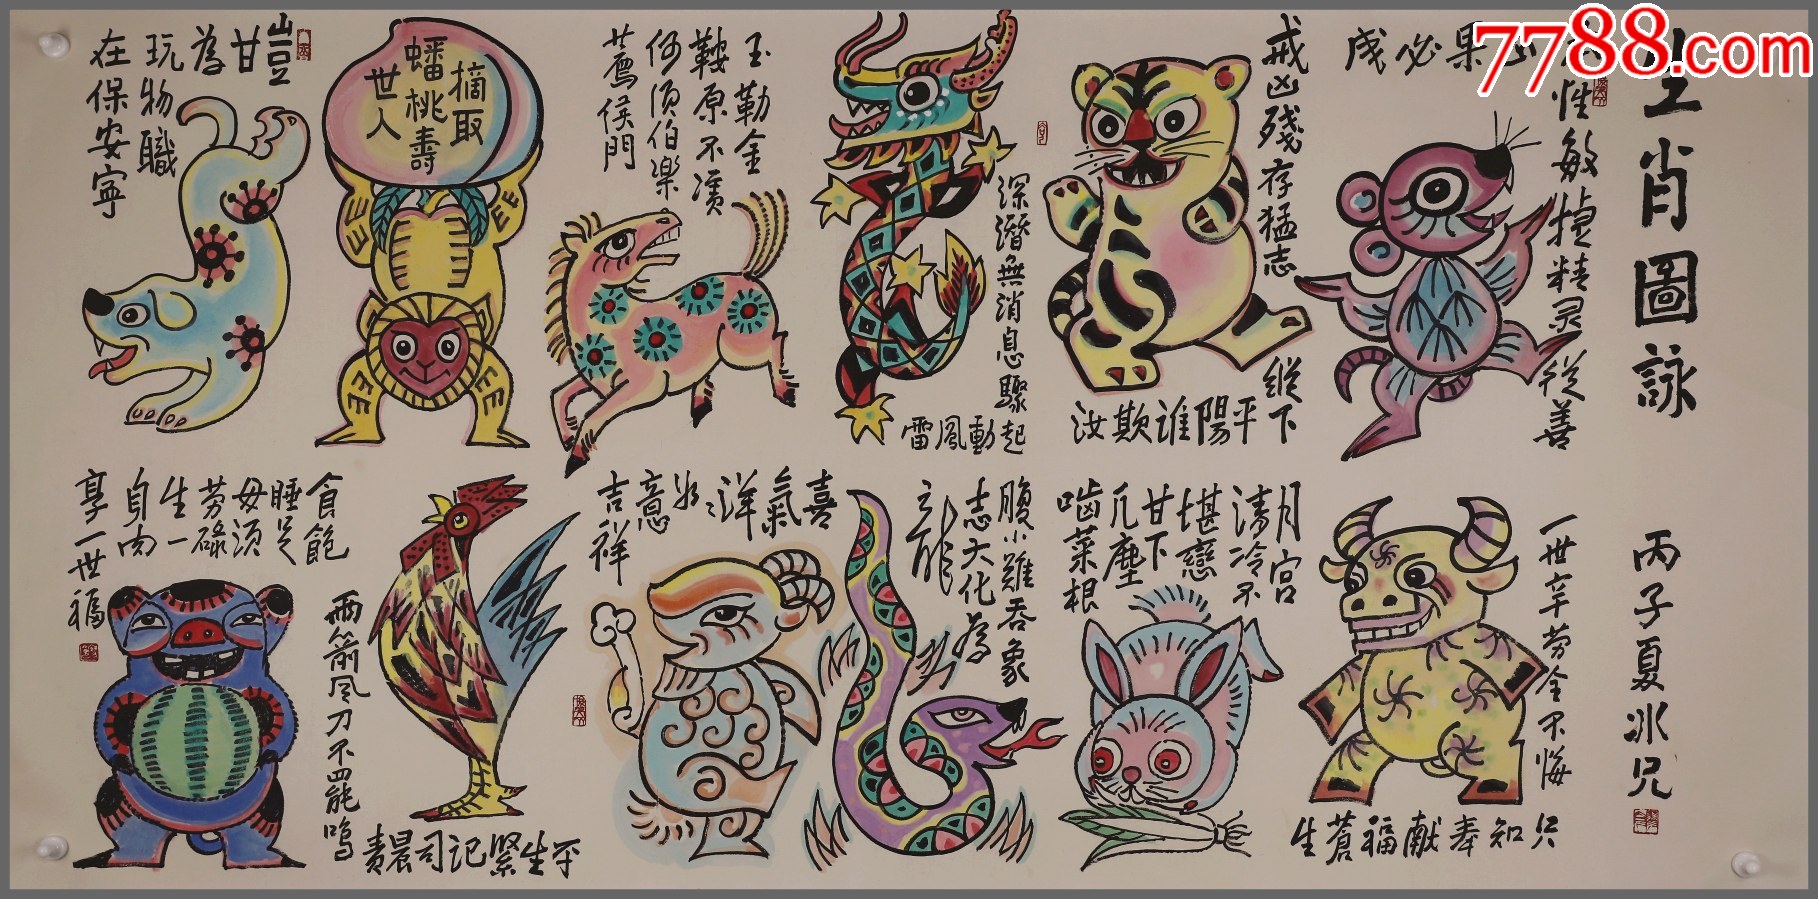 7788.com
生肖圖詠
丙子夏冰兄
性敏捷精灵從善
戒凶殘存猛志
縱下平陽誰欺汝
深潛無消息驟起
動風雷
玉勒金
鞍原不
何須伯樂
薦侯門
摘取
蟠桃壽
世人
豈
甘
為
玩物職
在保安寧
一世辛劳全不悔
只知奉献福蒼生
月宮
清冷不
堪戀
甘下
凡塵
啮菜根
腹小難吞象
志大化為
龍
喜
氣
洋
意
吉祥
平生緊記司晨責
雨箭风刀不罷鸣
食飽
睡足
毋須
劳碌
生一
享一世福